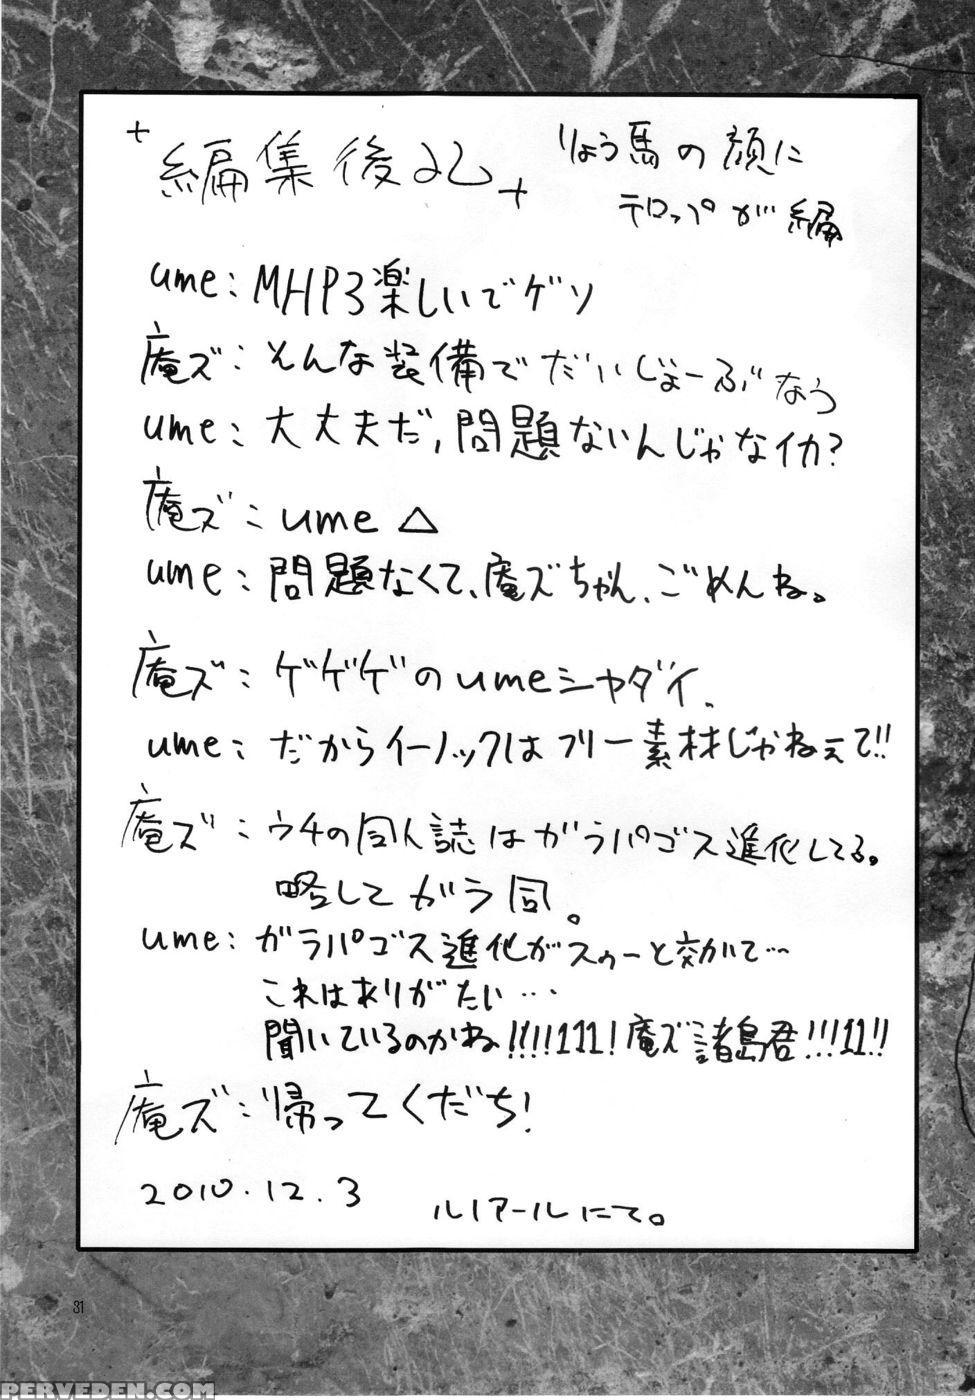 +編集後記+
りょう馬の顔に
テロップが編
ume:MHP3楽しいでゲソ
庵ズ:そんな装備でだいじょーぶなう
ume:大丈夫だ,問題ないんじゃなイカ?
庵ズ:ume△
ume:問題なくて、庵ズちゃん、ごめんね。
庵ズ:ゲゲゲのumeシャダイ、
ume:だからイーノックはフリー素材じゃねぇて!!
庵ズ:ウチの同人誌はガラパゴス進化してる。
略してガラ同。
ume:ガラパゴス進化がスゥーと効いて…
これはありがたい…
聞いているのかね!!!!111!庵ズ諸島君!!!11!!
庵ズ:帰ってくだち!
2010.12.3
ルノアールにて。
31
PERVEDEN.COM